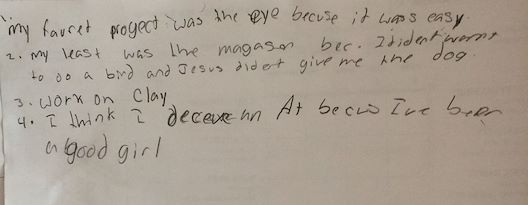 1. my favret progect was the eye becuse it was easy
2. my least was the magason bec. I dident wornt
to do a bird and Jesus didet give me the dog.
3. work on Clay
4. I think I deceve an At becus Ive been
a good girl